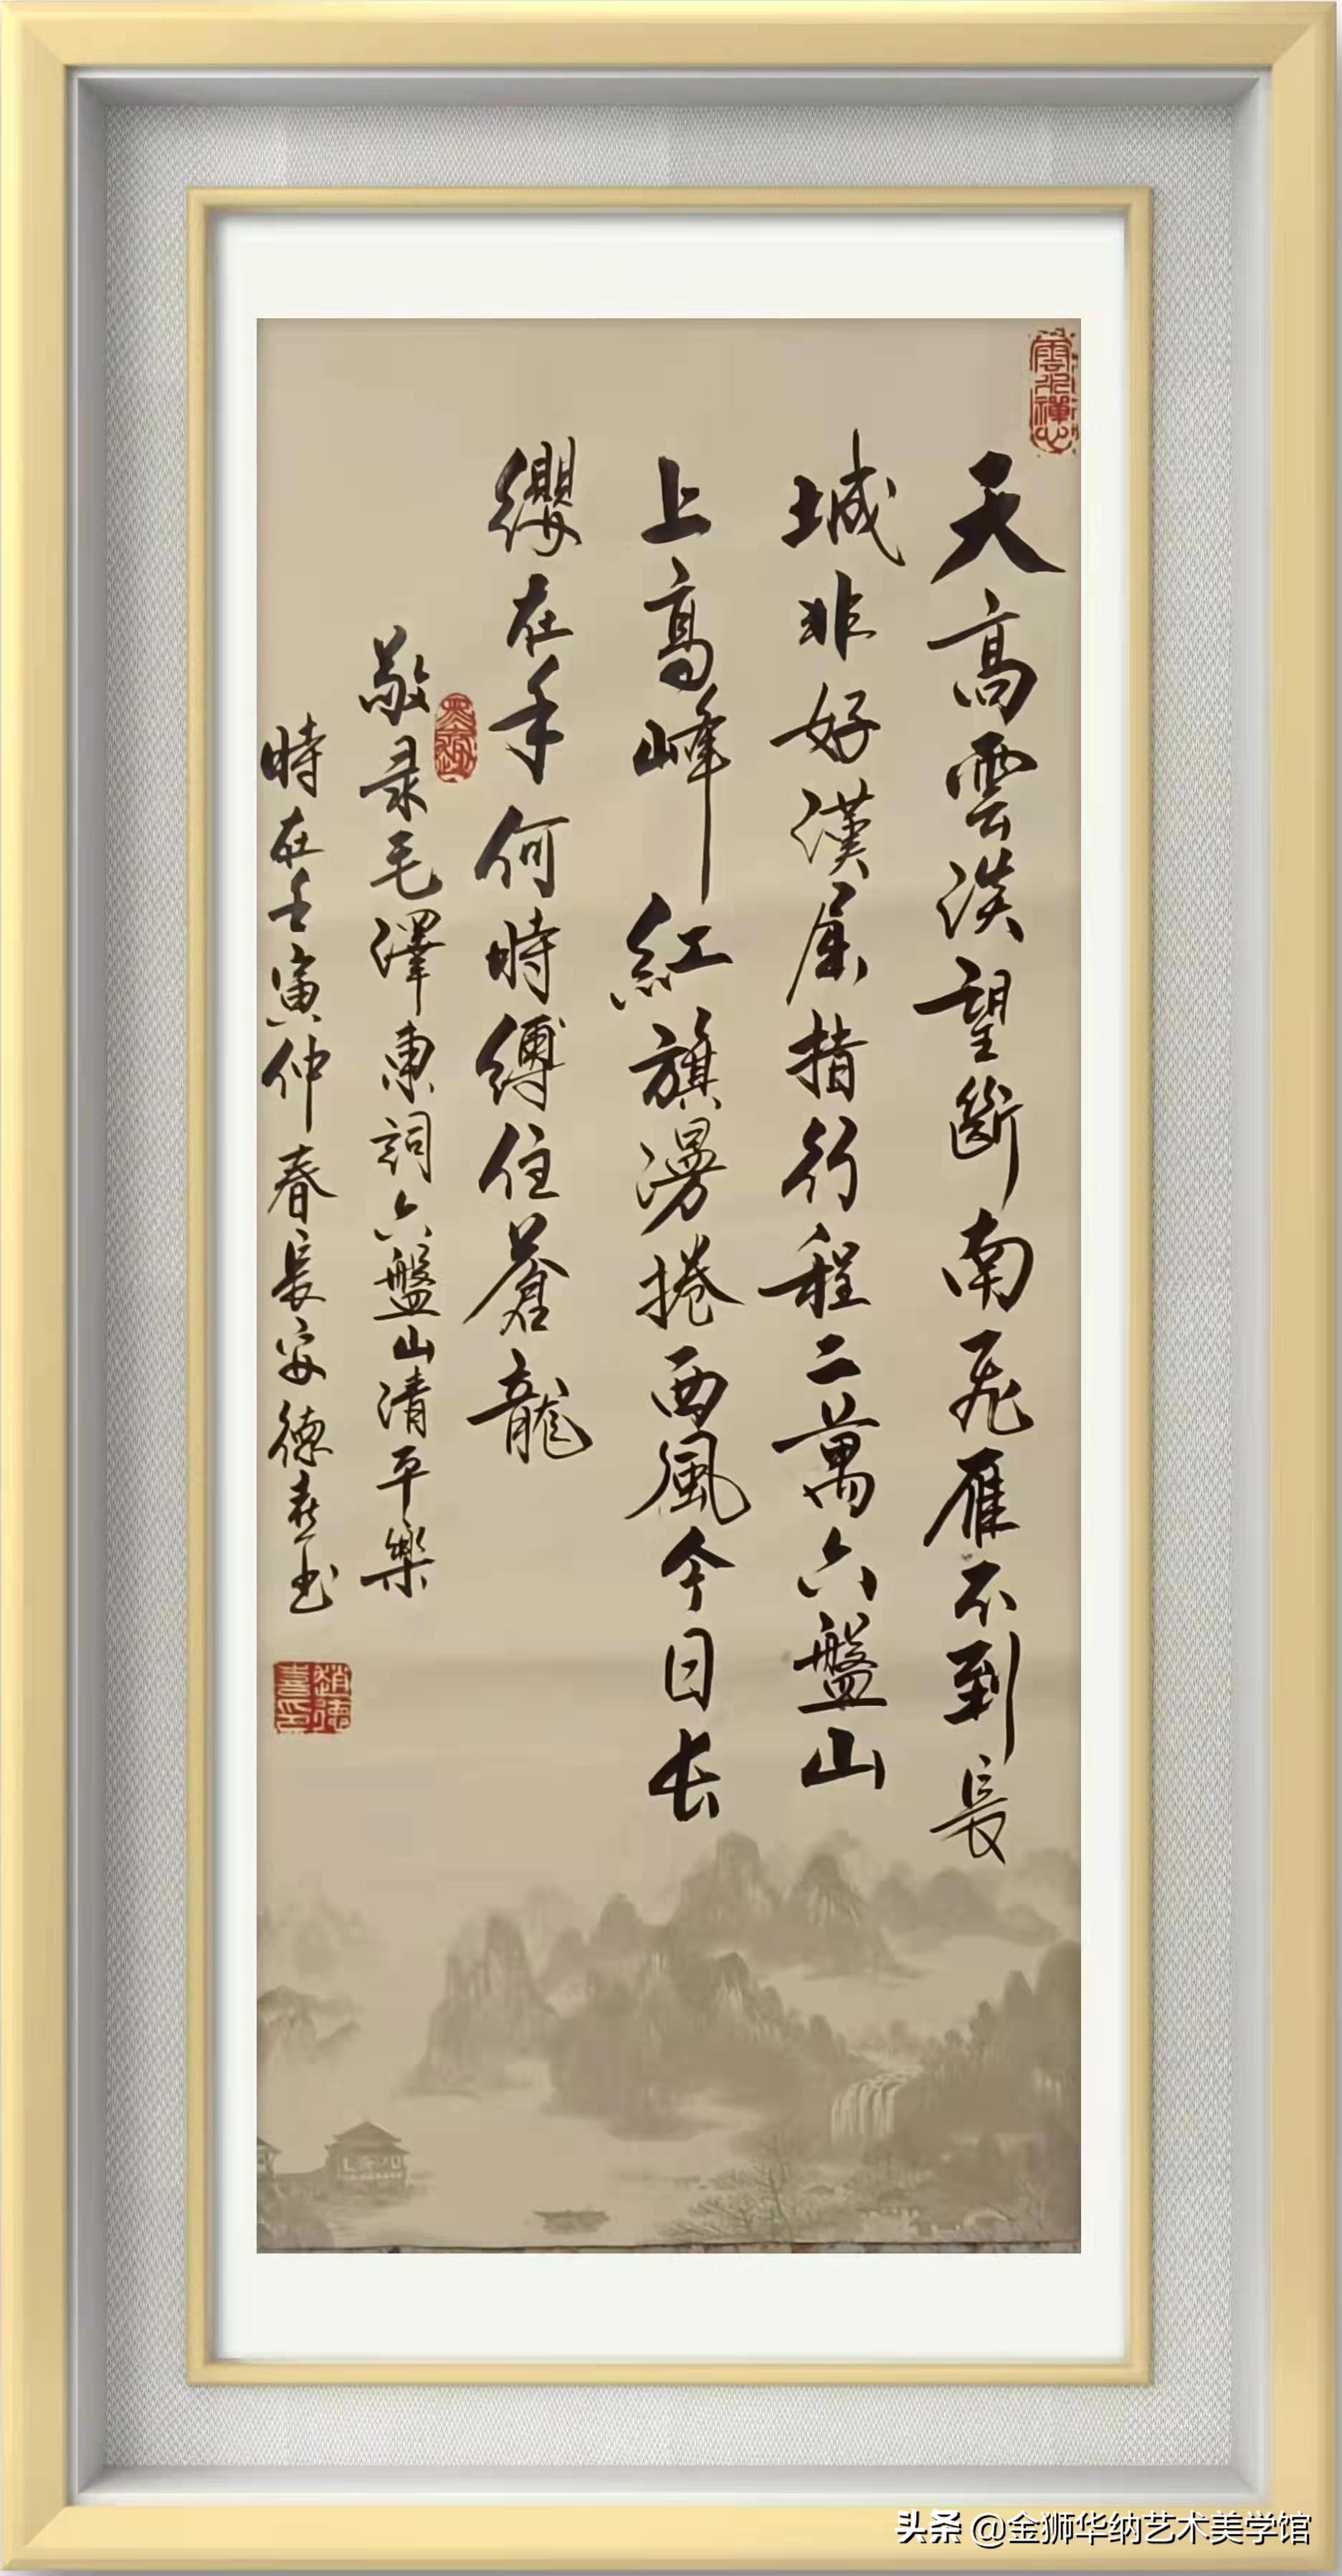 雲水禪心
天高雲淡望斷南飛雁不到長
城非好漢屈指行程二萬六盤山
上高峰紅旗漫捲西風今日长
纓在手何時縛住蒼龍
敬录毛澤東詞六盤山清平樂
時在壬寅仲春長安德喜书
趙德喜印
头条 @金狮华纳艺术美学馆